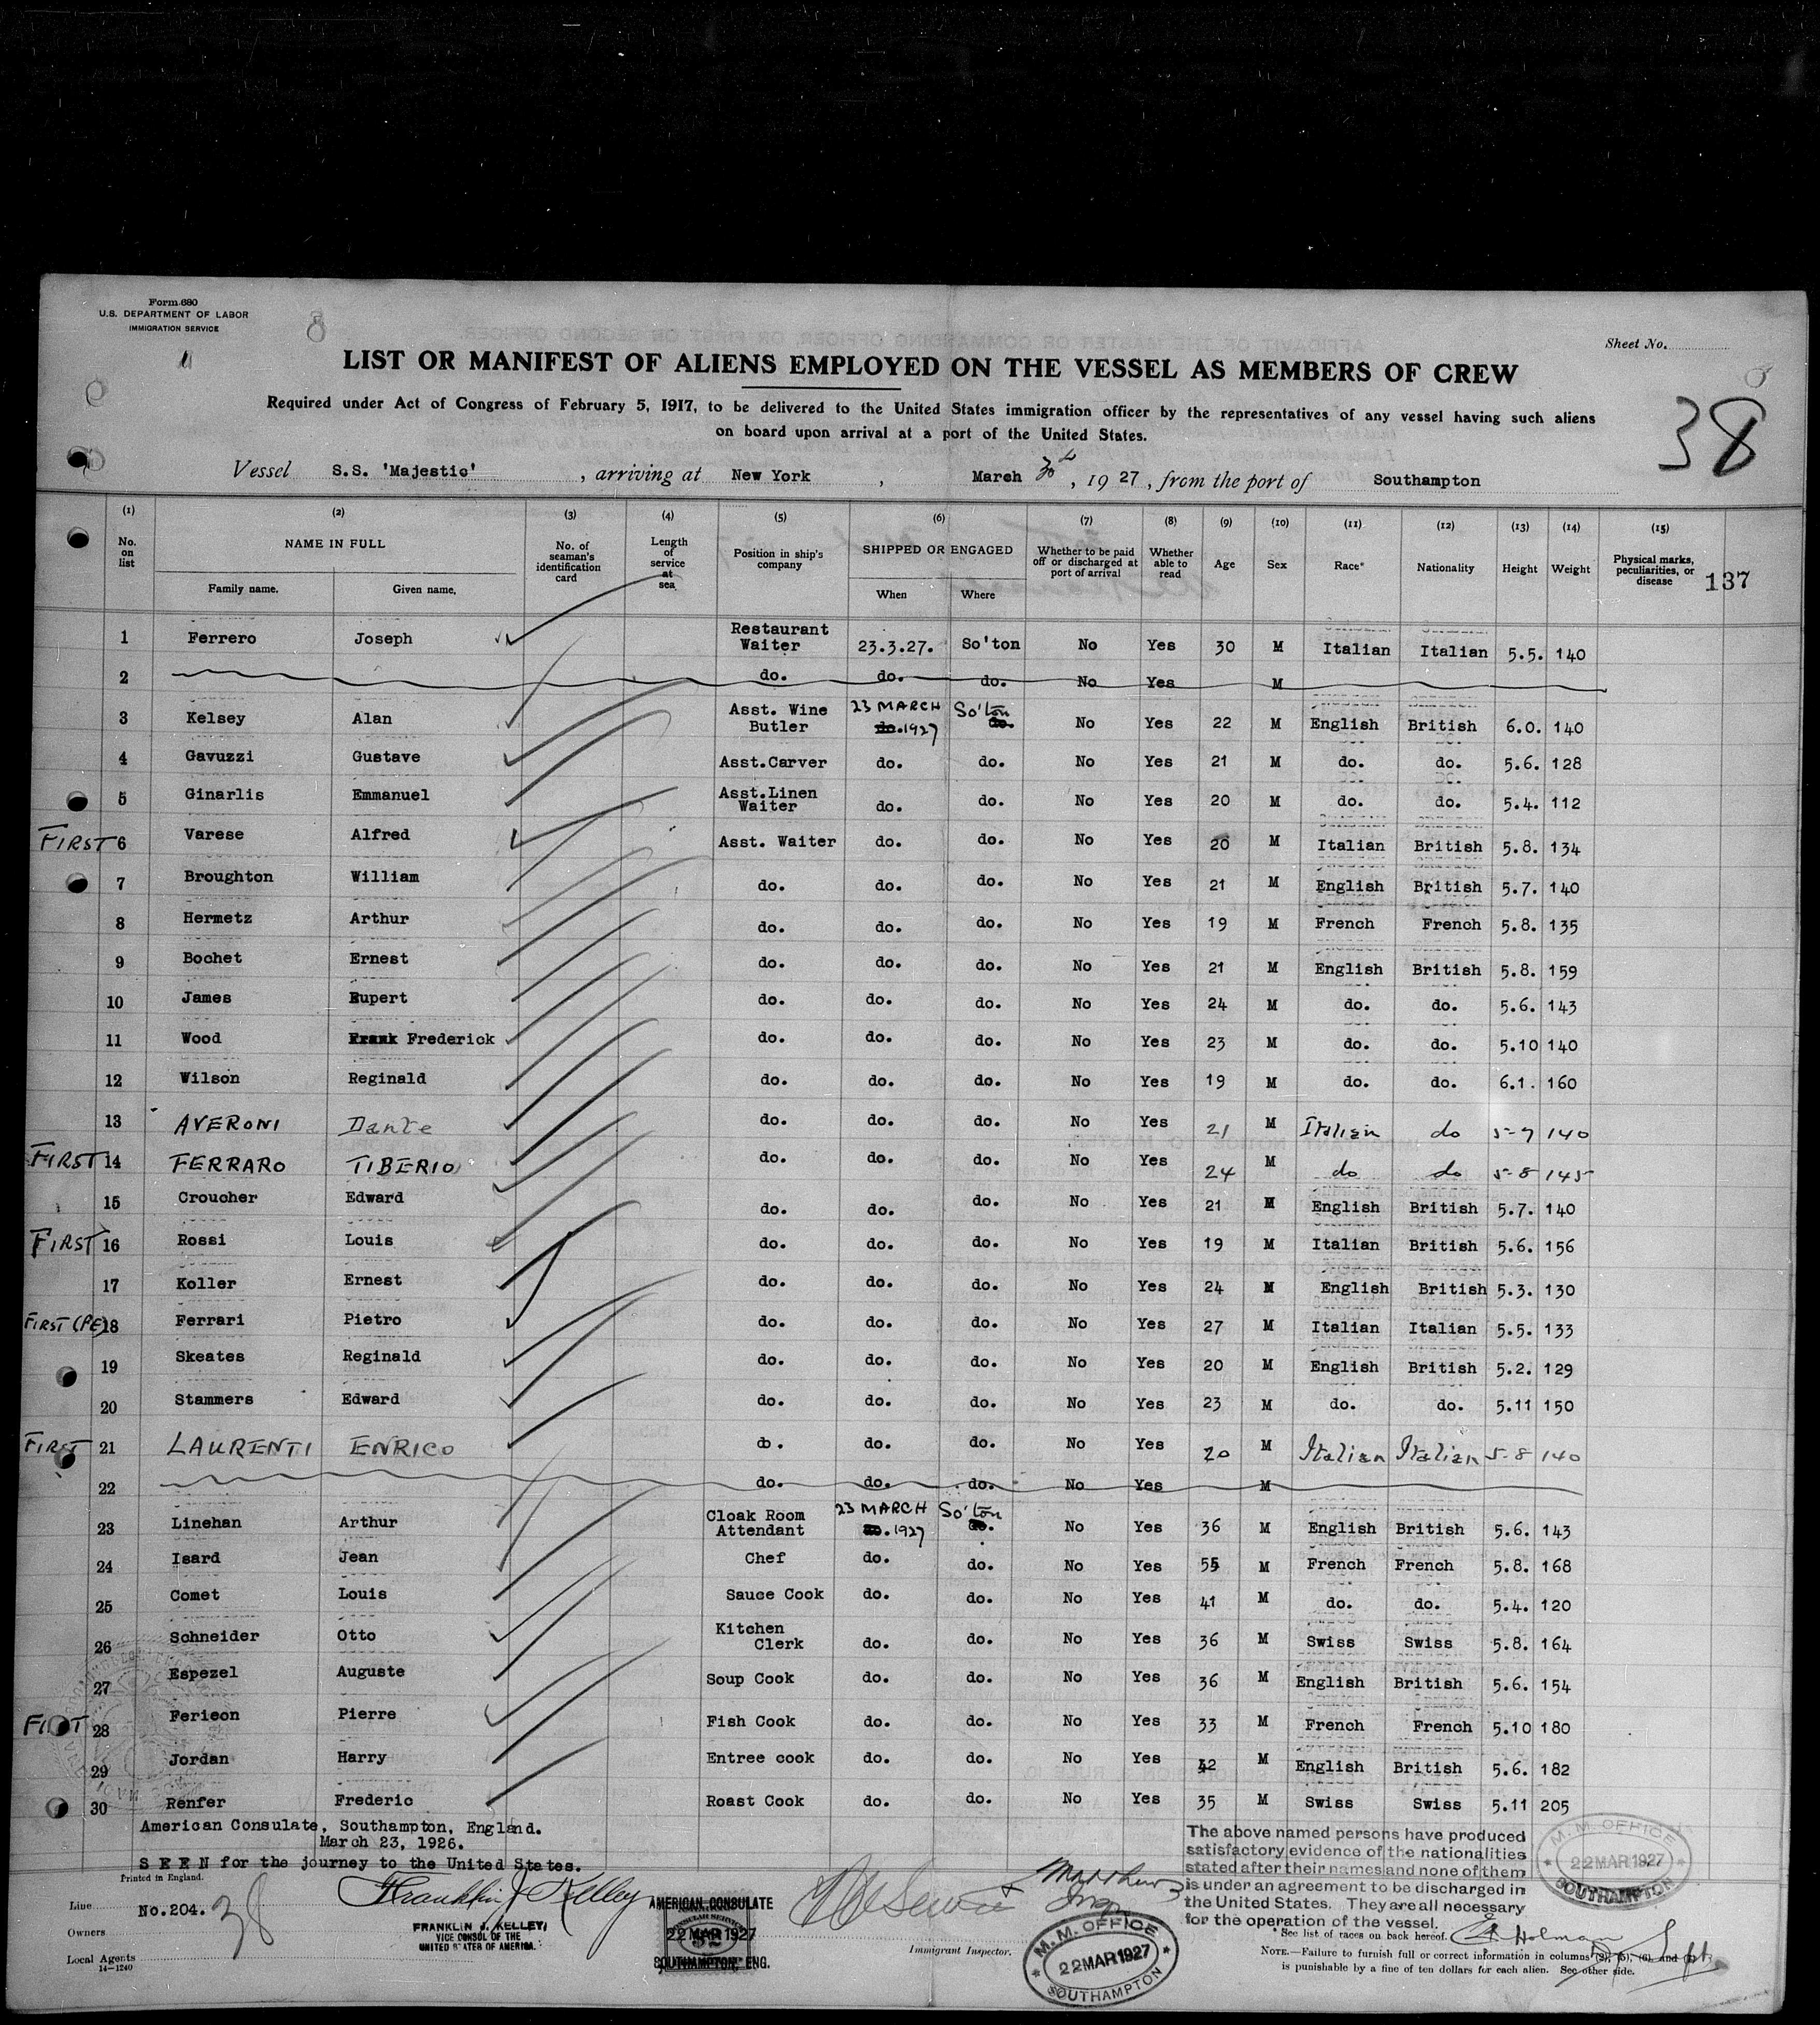 Form 680
U.S. DEPARTMENT OF LABOR
IMMIGRATION SERVICE
Sheet No.
LIST OR MANIFEST OF ALIENS EMPLOYED ON THE VESSEL AS MEMBERS OF CREW
Required under Act of Congress of February 5, 1917, to be delivered to the United States immigration officer by the representatives of any vessel having such aliens
on board upon arrival at a port of the United States.
38
Vessel S.S. 'Majestic' , arriving at New York , March 30 , 19 27 , from the port of Southampton
(1) (2) (3) (4) (5) (6) (7) (8) (9) (10) (11) (12) (13) (14) (15)
No. on list NAME IN FULL Family name. Given name. No. of seaman's identification card Length of service at sea Position in ship's company SHIPPED OR ENGAGED When Where Whether to be paid off or discharged at port of arrival Whether able to read Age Sex Race* Nationality Height Weight Physical marks, peculiarities, or disease 137
1 Ferrero Joseph Restaurant Waiter 23.3.27. So'ton No Yes 30 M Italian Italian 5.5. 140
2 do. do. do. No Yes M
3 Kelsey Alan Asst. Wine Butler 23 MARCH do. 1927 So'ton do. No Yes 22 M English British 6.0. 140
4 Gavuzzi Gustave Asst.Carver do. do. No Yes 21 M do. do. 5.6. 128
5 Ginarlis Emmanuel Asst.Linen Waiter do. do. No Yes 20 M do. do. 5.4. 112
FIRST 6 Varese Alfred Asst. Waiter do. do. No Yes 20 M Italian British 5.8. 134
7 Broughton William do. do. do. No Yes 21 M English British 5.7. 140
8 Hermetz Arthur do. do. do. No Yes 19 M French French 5.8. 135
9 Bochet Ernest do. do. do. No Yes 21 M English British 5.8. 159
10 James Rupert do. do. do. No Yes 24 M do. do. 5.6. 143
11 Wood Frank Frederick do. do. do. No Yes 23 M do. do. 5.10 140
12 Wilson Reginald do. do. do. No Yes 19 M do. do. 6.1. 160
13 AVERONI Dante do. do. do. No Yes 21 M Italian do 5-7 140
FIRST 14 FERRARO TIBERIO do. do. do. No Yes 24 M do do 5-8 145
15 Croucher Edward do. do. do. No Yes 21 M English British 5.7. 140
FIRST 16 Rossi Louis do. do. do. No Yes 19 M Italian British 5.6. 156
17 Koller Ernest do. do. do. No Yes 24 M English British 5.3. 130
FIRST (PE) 18 Ferrari Pietro do. do. do. No Yes 27 M Italian Italian 5.5. 133
19 Skeates Reginald do. do. do. No Yes 20 M English British 5.2. 129
20 Stammers Edward do. do. do. No Yes 23 M do. do. 5.11 150
FIRST 21 LAURENTI ENRICO do. do. do. No Yes 20 M Italian Italian 5-8 140
22 do. do. do. No Yes M
23 Linehan Arthur Cloak Room Attendant 23 MARCH do. 1927 So'ton do. No Yes 36 M English British 5.6. 143
24 Isard Jean Chef do. do. No Yes 55 M French French 5.8. 168
25 Comet Louis Sauce Cook do. do. No Yes 41 M do. do. 5.4. 120
26 Schneider Otto Kitchen Clerk do. do. No Yes 36 M Swiss Swiss 5.8. 164
27 Espezel Auguste Soup Cook do. do. No Yes 36 M English British 5.6. 154
FIRST 28 Ferieon Pierre Fish Cook do. do. No Yes 33 M French French 5.10 180
29 Jordan Harry Entree cook do. do. No Yes 42 M English British 5.6. 182
30 Renfer Frederic Roast Cook do. do. No Yes 35 M Swiss Swiss 5.11 205
American Consulate, Southampton, England.
March 23, 1926.
SEEN for the journey to the United States.
Printed in England.
Line
No.204. 38
Owners
Local Agents
14-1240
Franklin J Kelley
FRANKLIN J. KELLEY,
VICE CONSUL OF THE
UNITED STATES OF AMERICA.
AMERICAN CONSULATE
22 MAR 1927
SOUTHAMPTON, ENG.
Immigrant Inspector.
M.M. OFFICE
22 MAR 1927
SOUTHAMPTON
The above named persons have produced
satisfactory evidence of the nationalities
stated after their names and none of them
is under an agreement to be discharged in
the United States. They are all necessary
for the operation of the vessel.
M.M. OFFICE
22 MAR 1927
SOUTHAMPTON
* See list of races on back hereof.
Holman
NOTE.—Failure to furnish full or correct information in columns (2), (5), (6), and (7)
is punishable by a fine of ten dollars for each alien. See other side.